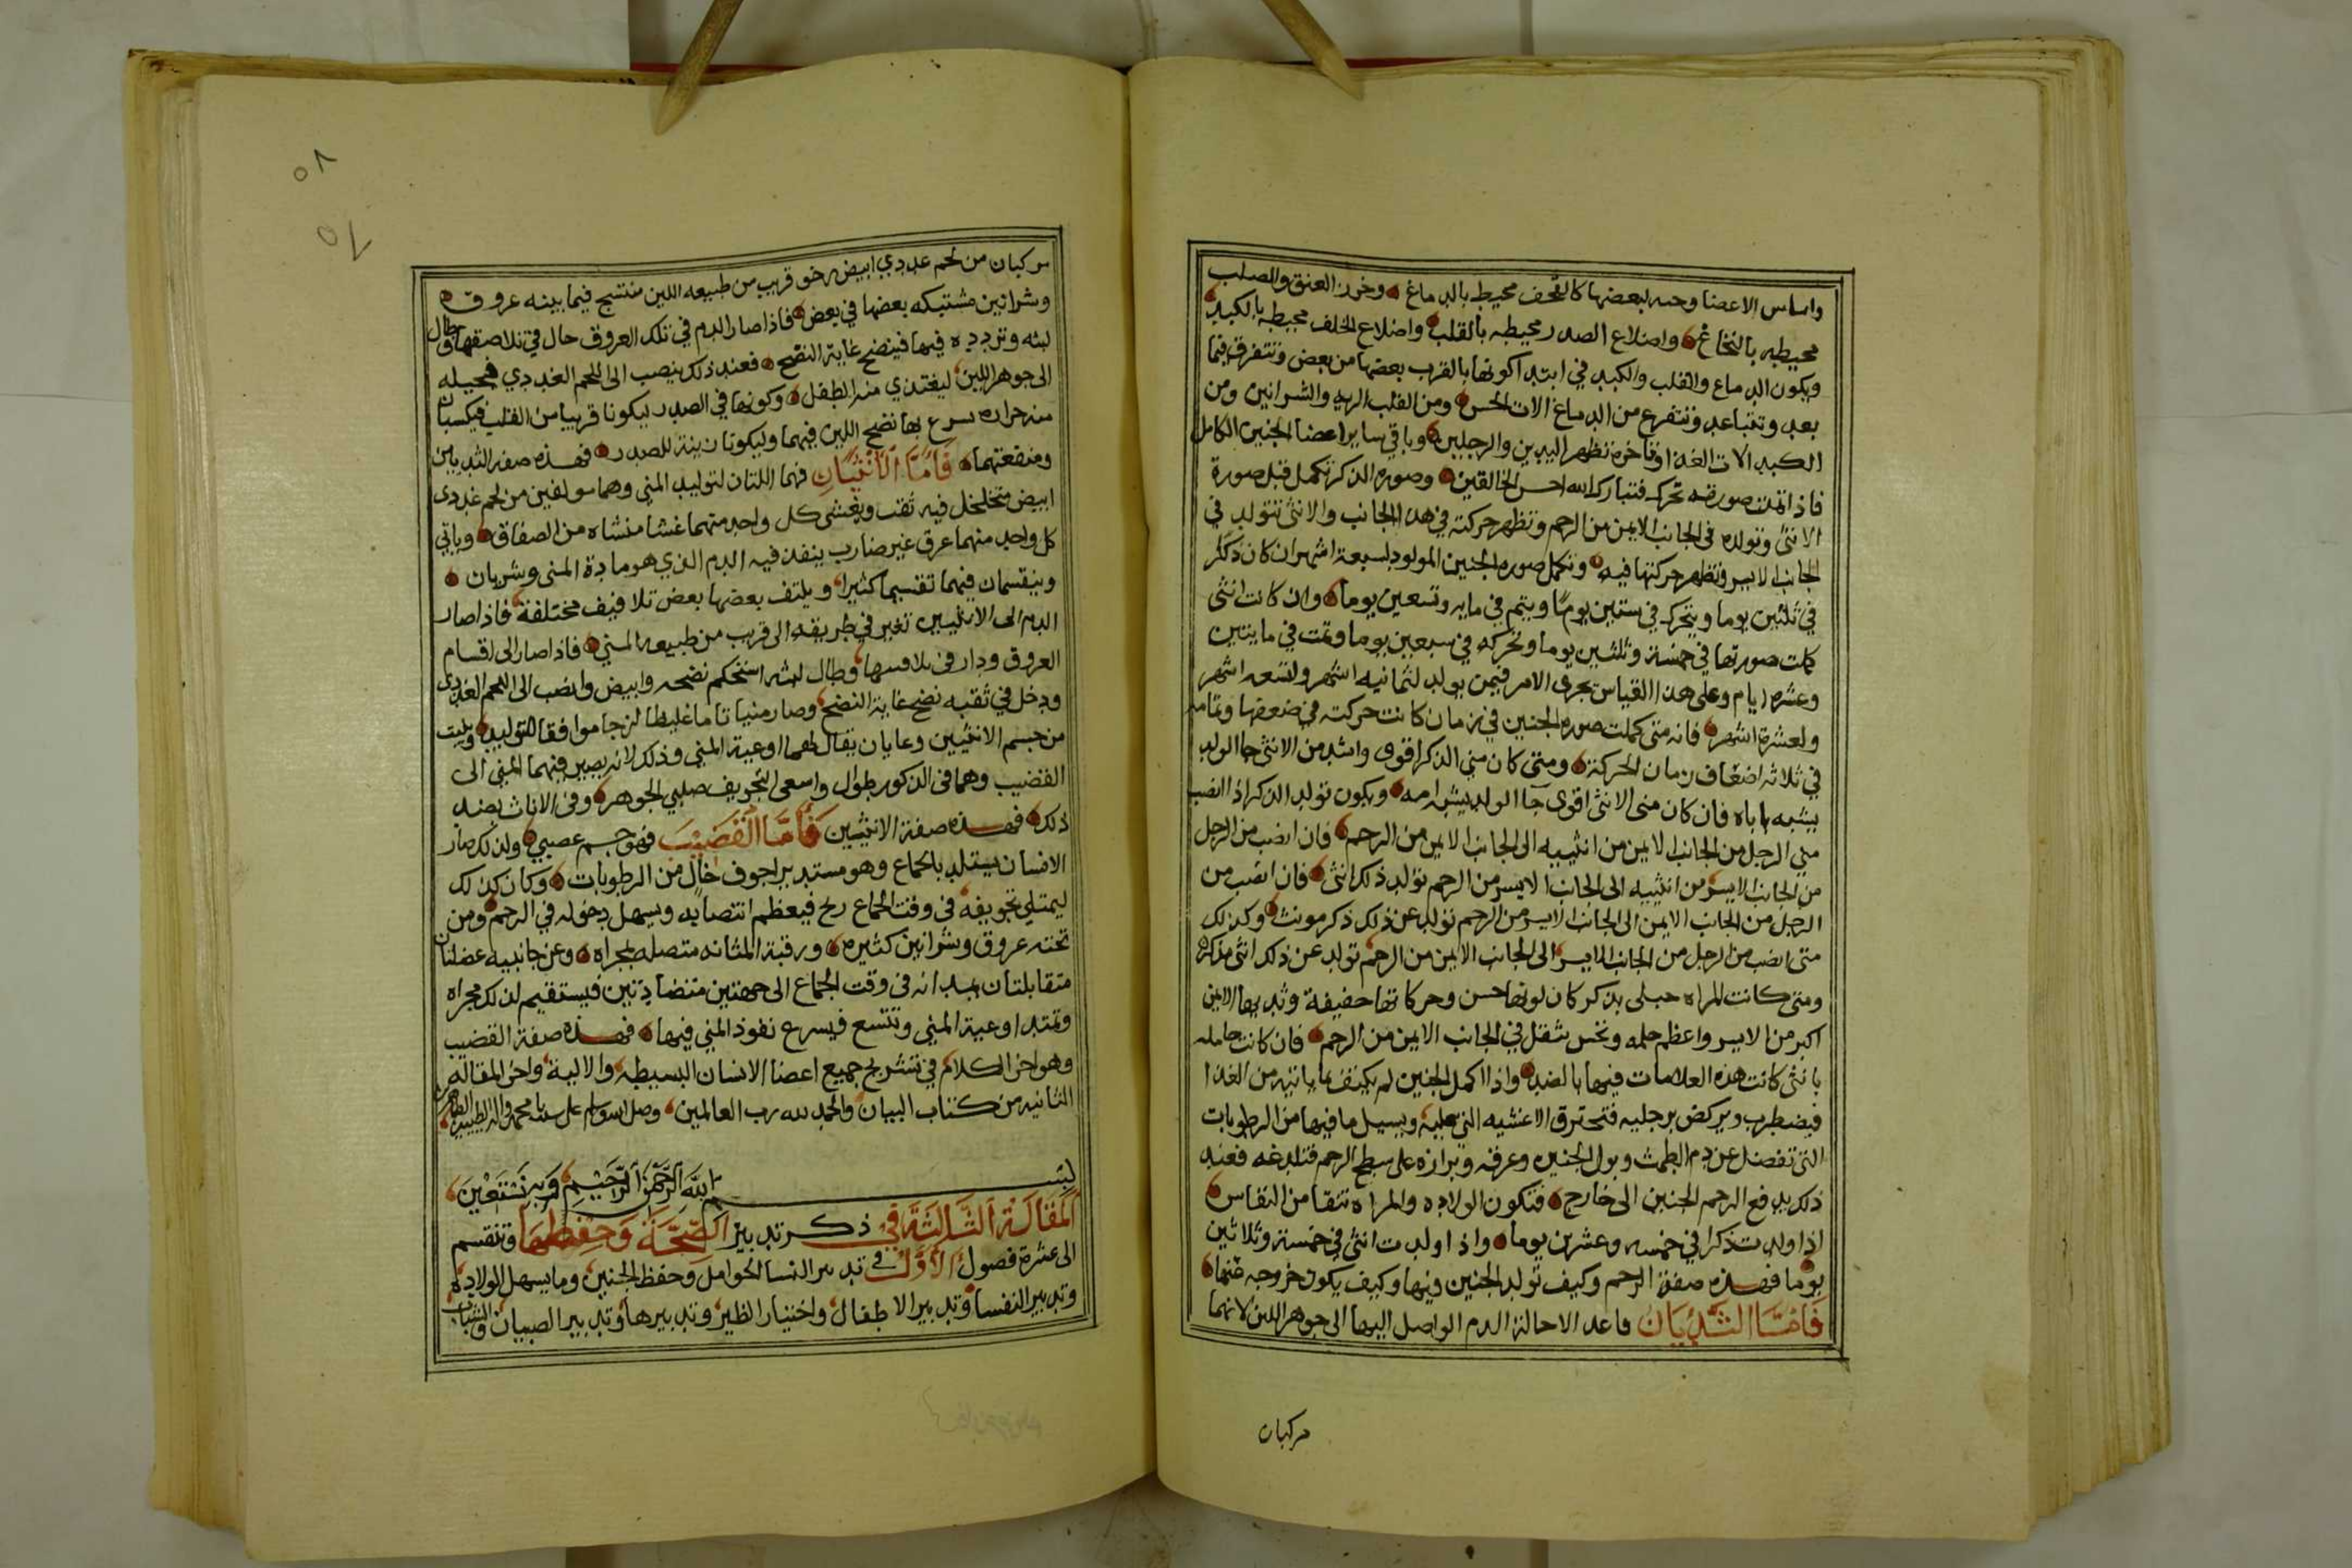 واساس الاعضا وجنه لبعضها كالقحف محيط بالدماغ وخرز العنق والصلب
محيطه بالنخاع واضلاع الصدر محيطه بالقلب واضلاع الخلف محيطه بالكبد
ويكون الدماغ والقلب والكبد في ابتدا كونها بالقرب بعضها من بعض وتتفرق فيما
بعد وتتباعد وتتفرع من الدماغ الات الحس ومن القلب الريه والشرانين ومن
الكبد الات الغدا وباخره تظهر اليدين والرجلين وباقي ساير اعضا الجنين الكامل
فاذا تمت صورته تحرك فتبارك الله احسن الخالقين وصوره الذكر تكمل قبل صورة
الانثى وتولده في الجانب الايمن من الرحم وتظهر حركته في هدا الجانب والانثى تتولد في
الجانب الايسر وتظهر حركتها فيه وتكمل صوره الجنين المولود لسبعة اشهر ان كان ذكر
في ثلثين يوما ويتحرك في ستين يومًا ويتم في مايه وتسعين يوما وان كانت انثى
كملت صورتها في خمسة وثلثين يوما وتحركه في سبعين يوما وتمت في مايتين
وعشره ايام وعلى هدا القياس يجرى الامر فيمن يولد لثمانيه اشهر ولتسعه اشهر
ولعشرة اشهر فانه متى كملت صوره الجنين في زمان كانت حركته في ضعفها وتمامه
في ثلاثه اضعاف زمان الحركة ومتى كان مني الذكر اقوى واشد من الانثى جا الولد
يشبه اباه فان كان منى الانثى اقوى جا الولد يشبه امه ويكون تولد الذكر اذا انصب
مني الرجل من الجانب الايمن من انثييه الى الجانب الايمن من الرحم فان انصب من الرجل
من الجانب الايسر من انثييه الى الجانب الايسر من الرحم تولد ذلك انثى فان انصب من
الرجل من الجانب الايمن الى الجانب الايسر من الرحم تولد عن ذلك ذكر مونث وكذلك
متى انصب من الرجل من الجانب الايسر الى الجانب الايمن من الرحم تولد عن ذلك انثى مذكره
ومتى كانت المراه حبلى بذكر كان لونها حسن وحركاتها خفيفة وثديها الايمن
اكبر من الايسر واعظم حلمه وتحس بثقل في الجانب الايمن من الرحم فان كانت حامله
بانثى كانت هذه العلامات فيها بالضد واذا اكمل الجنين لم يكتف بما ياتيه من الغدا
فيضطرب ويركض برجليه فتحترق الاغشيه التي عليه ويسيل ما فيها من الرطوبات
التي تفضل عن دم الطمث وبول الجنين وعرقه وبرازه على سطح الرحم فتلدغه فعند
ذلك يدفع الرحم الجنين الى خارج فتكون الولاده والمراه تنقا من النفاس
اذا ولدت ذكرا في خمسه وعشرين يوما واذا ولدت انثى في خمسة وثلاثين
يوما فهذه صفة الرحم وكيف تولد الجنين فيها وكيف يكون خروجه عنها
فَامَّا الثديَان فاعد الاحالة الدم الواصل اليها الى جوهر اللبن لانهما
مركبان
مركبان من لحم غددي ابيض رخو قريب من طبيعه اللبن منتسج فيما بينه عروق
وشرانين مشتبكه بعضها في بعض فاذا صار الدم في تلك العروق جال في تلاصقها وطال
لبثه وتردده فيها فينضج غاية النضج فعند ذلك ينصب الى اللحم الغددي فيحيله
الى جوهر اللبن ليغتدي منه الطفل وكونها في الصدر ليكونا قريبا من القلب فيكسبان
منه حراره يسرع بها نضج اللبن فيهما وليكونا زينة للصدر فهذه صفه الثديين
ومنفعتهما فَامَّا الاُنْثَيَانِ فهما اللتان لتوليد المني وهما مولفين من لحم غددى
ابيض متخلخل فيه ثقب ويغشى كل واحد منهما غشا منشاه من الصفاق وياتي
كل واحد منهما عرق غير ضارب ينفذ فيه الدم الذي هو مادة المنى وشريان
وينقسمان فيهما تقسيما كثيرا ويلتف بعضها بعض تلافيف مختلفة فاذا صار
الدم الى الانثيين تغير في طريقه الى قريب من طبيعه المني فاذا صار الى اقسام
العروق ودار في تلافيفها وطال لبثه استحكم نضجه وابيض وانصب الى اللحم الغددى
ودخل في ثقبه نضج غاية النضج وصار منيا تاما غليظا لزجا موافقا للتوليد وينبت
من جسم الانثيين وعايان يقال لهما اوعية المني وذلك لانه يصير فيهما المني الى
القضيب وهما في الذكور طوال واسعى التجويف صلبي الجوهر وفى الاناث بضد
ذلك فهذه صفة الانثيين فَامَّا القَضِيْبَ فهو جسم عصبي ولذلك صار
الانسان يستلد بالجماع وهو مستدير اجوف خالٍ من الرطوبات وكان كذلك
ليمتلي تجويفه في وقت الجماع ريح فيعظم انتصابه ويسهل دخوله في الرحم ومن
تحته عروق وشرانين كثيره ورقبة المثانه متصله بمجراه وعن جانبيه عضلتان
متقابلتان يمدانه في وقت الجماع الى جهتين متضادتين فيستقيم لذلك مجراه
وتمتد اوعية المني وتتسع فيسرع نفوذ المني فيها فهذه صفة القضيب
وهو اخر الكلام في تشريح جميع اعضا الانسان البسيطه والالية واخر المقاله
الثانيه من كتاب البيان والحمد لله رب العالمين وصل الله وسلم على سيدنا محمد واله الطيبين الطاهرين
بسم الله الرحمن الرحيم وبه نستعين
المَقَالَة الثَّالِثَة في ذكر تدبير الصِّحَّة وَحِفْظِهَا وتنقسم
الى عشرة فصول الاَوَّل في تدبير النسا الحوامل وحفظ الجنين وما يسهل الولاده
وتدبير النفسا وتدبير الاطفال واختيار الظير وتدبيرها وتدبير الصبيان والشباب
٥٨